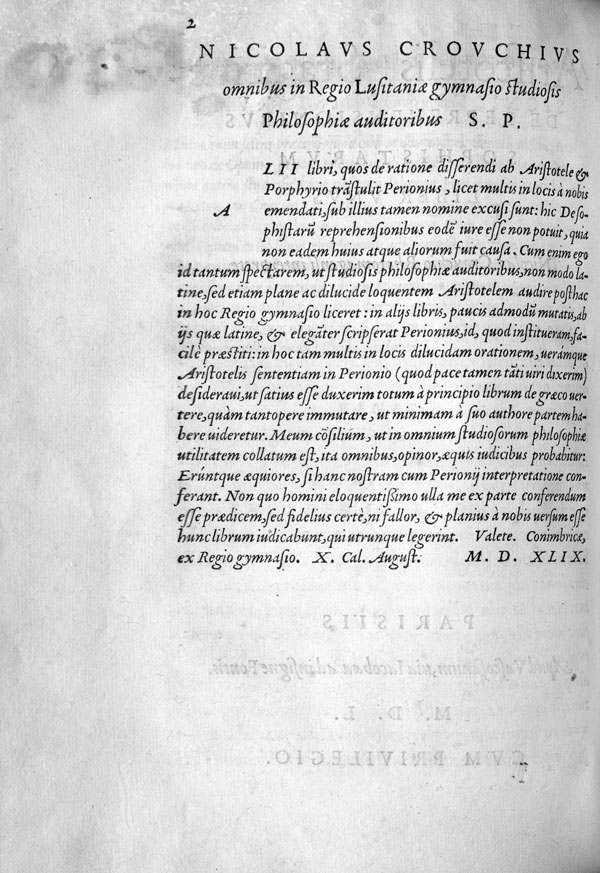 2
NICOLAVS CROVCHIVS
omnibus in Regio Lusitaniæ gymnasio studiosis
Philosophiæ auditoribus S. P.
LII libri, quos de ratione disserendi ab Aristotele &
Porphyrio trāstulit Perionius, licet multis in locis à nobis
A emendati, sub illius tamen nomine excusi sunt: hic De so-
phistarū reprehensionibus eodē iure esse non potuit, quia
non eadem huius atque aliorum fuit causa. Cum enim ego
id tantum spectarem, ut studiosis philosophiæ auditoribus, non modo la-
tine, sed etiam plane ac dilucide loquentem Aristotelem audire posthac
in hoc Regio gymnasio liceret: in alijs libris, paucis admodū mutatis, ab
ijs quæ latine, & elegāter scripserat Perionius, id, quod institueram, fa-
cilè præstiti: in hoc tam multis in locis dilucidam orationem, uerámque
Aristotelis sententiam in Perionio (quod pace tamen tāti uiri dixerim)
desideraui, ut satius esse duxerim totum à principio librum de græco uer-
tere, quàm tantopere immutare, ut minimam à suo authore partem ha-
bere uideretur. Meum cōsilium, ut in omnium studiosorum philosophiæ
utilitatem collatum est, ita omnibus, opinor, æquis iudicibus probabitur:
Erúntque æquiores, si hanc nostram cum Perionij interpretatione con-
ferant. Non quo homini eloquentißimo ulla me ex parte conferendum
esse prædicem, sed fidelius certè, ni fallor, & planius à nobis uersum esse
hunc librum iudicabunt, qui utrunque legerint. Valete. Conimbricæ,
ex Regio gymnasio. X. Cal. August. M. D. XLIX.
PARISIIS
Apud Vascosanum, uia Iacobæa ad insigne Fontis.
M. D. L.
CVM PRIVILEGIO.